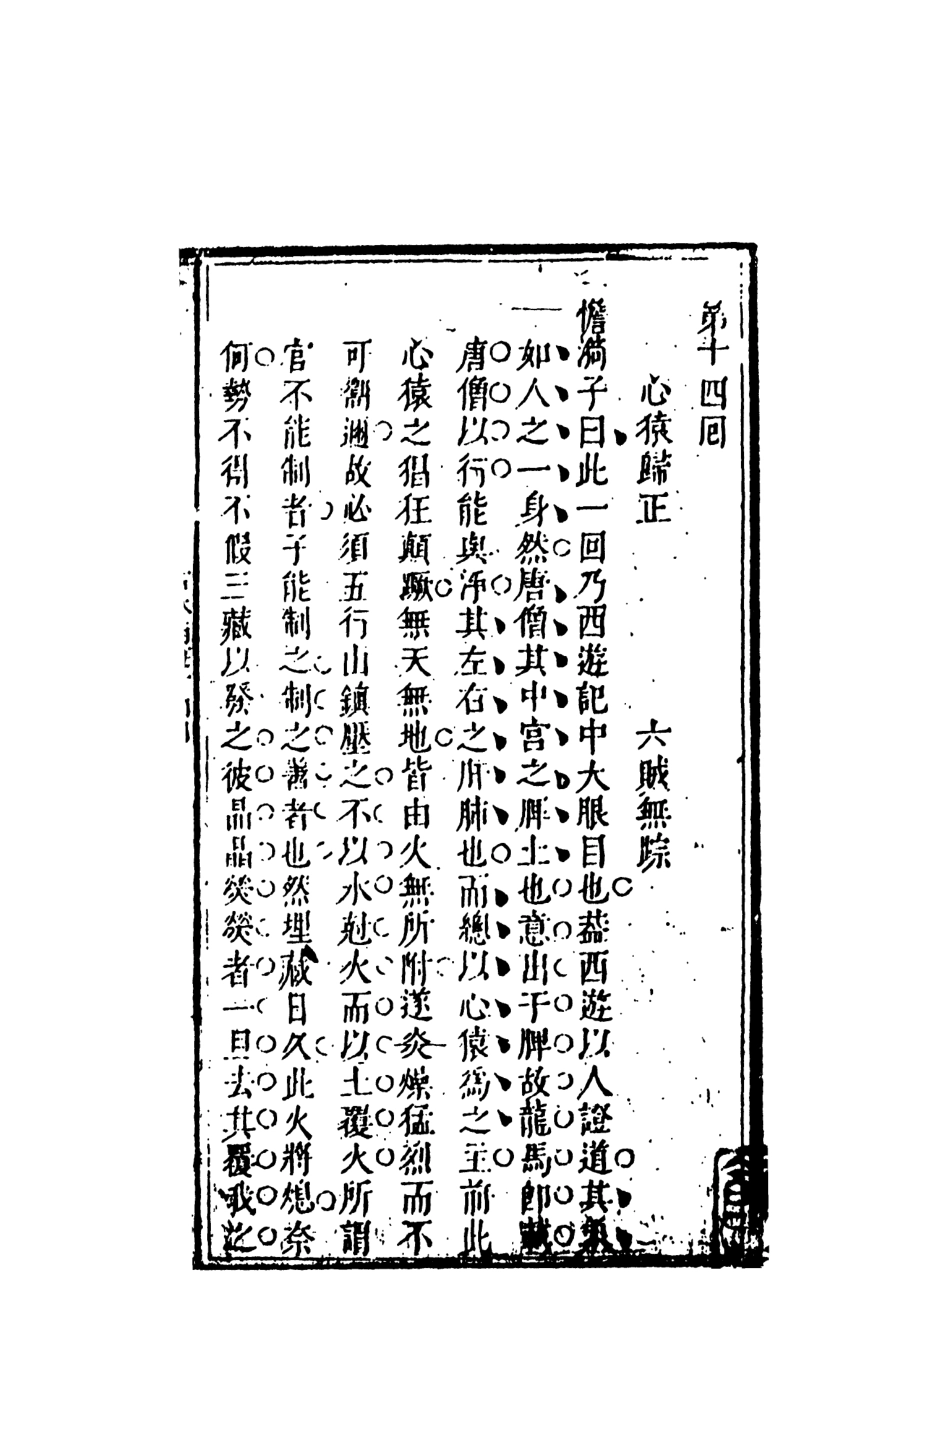 第十四回
心猿歸正　六賊無踪
憺漪子曰此一回乃西遊記中大眼目也葢西遊以人證道其
一如人之一身然唐僧其中宮之脾土也意出于脾故龍馬卽
唐僧以行能與淨其左右之肝肺也而總以心猿爲之主前此
心猿之猖狂顛蹶無天無地皆由火無所附遂炎燥猛烈而不
可嚮邇故必須五行山鎮壓之不以水尅火而以土覆火所謂
官不能制者子能制之制之善者也然埋藏日久此火將熄奈
何勢不得不假三藏以發之彼晶晶熒熒者一旦去其覆我之